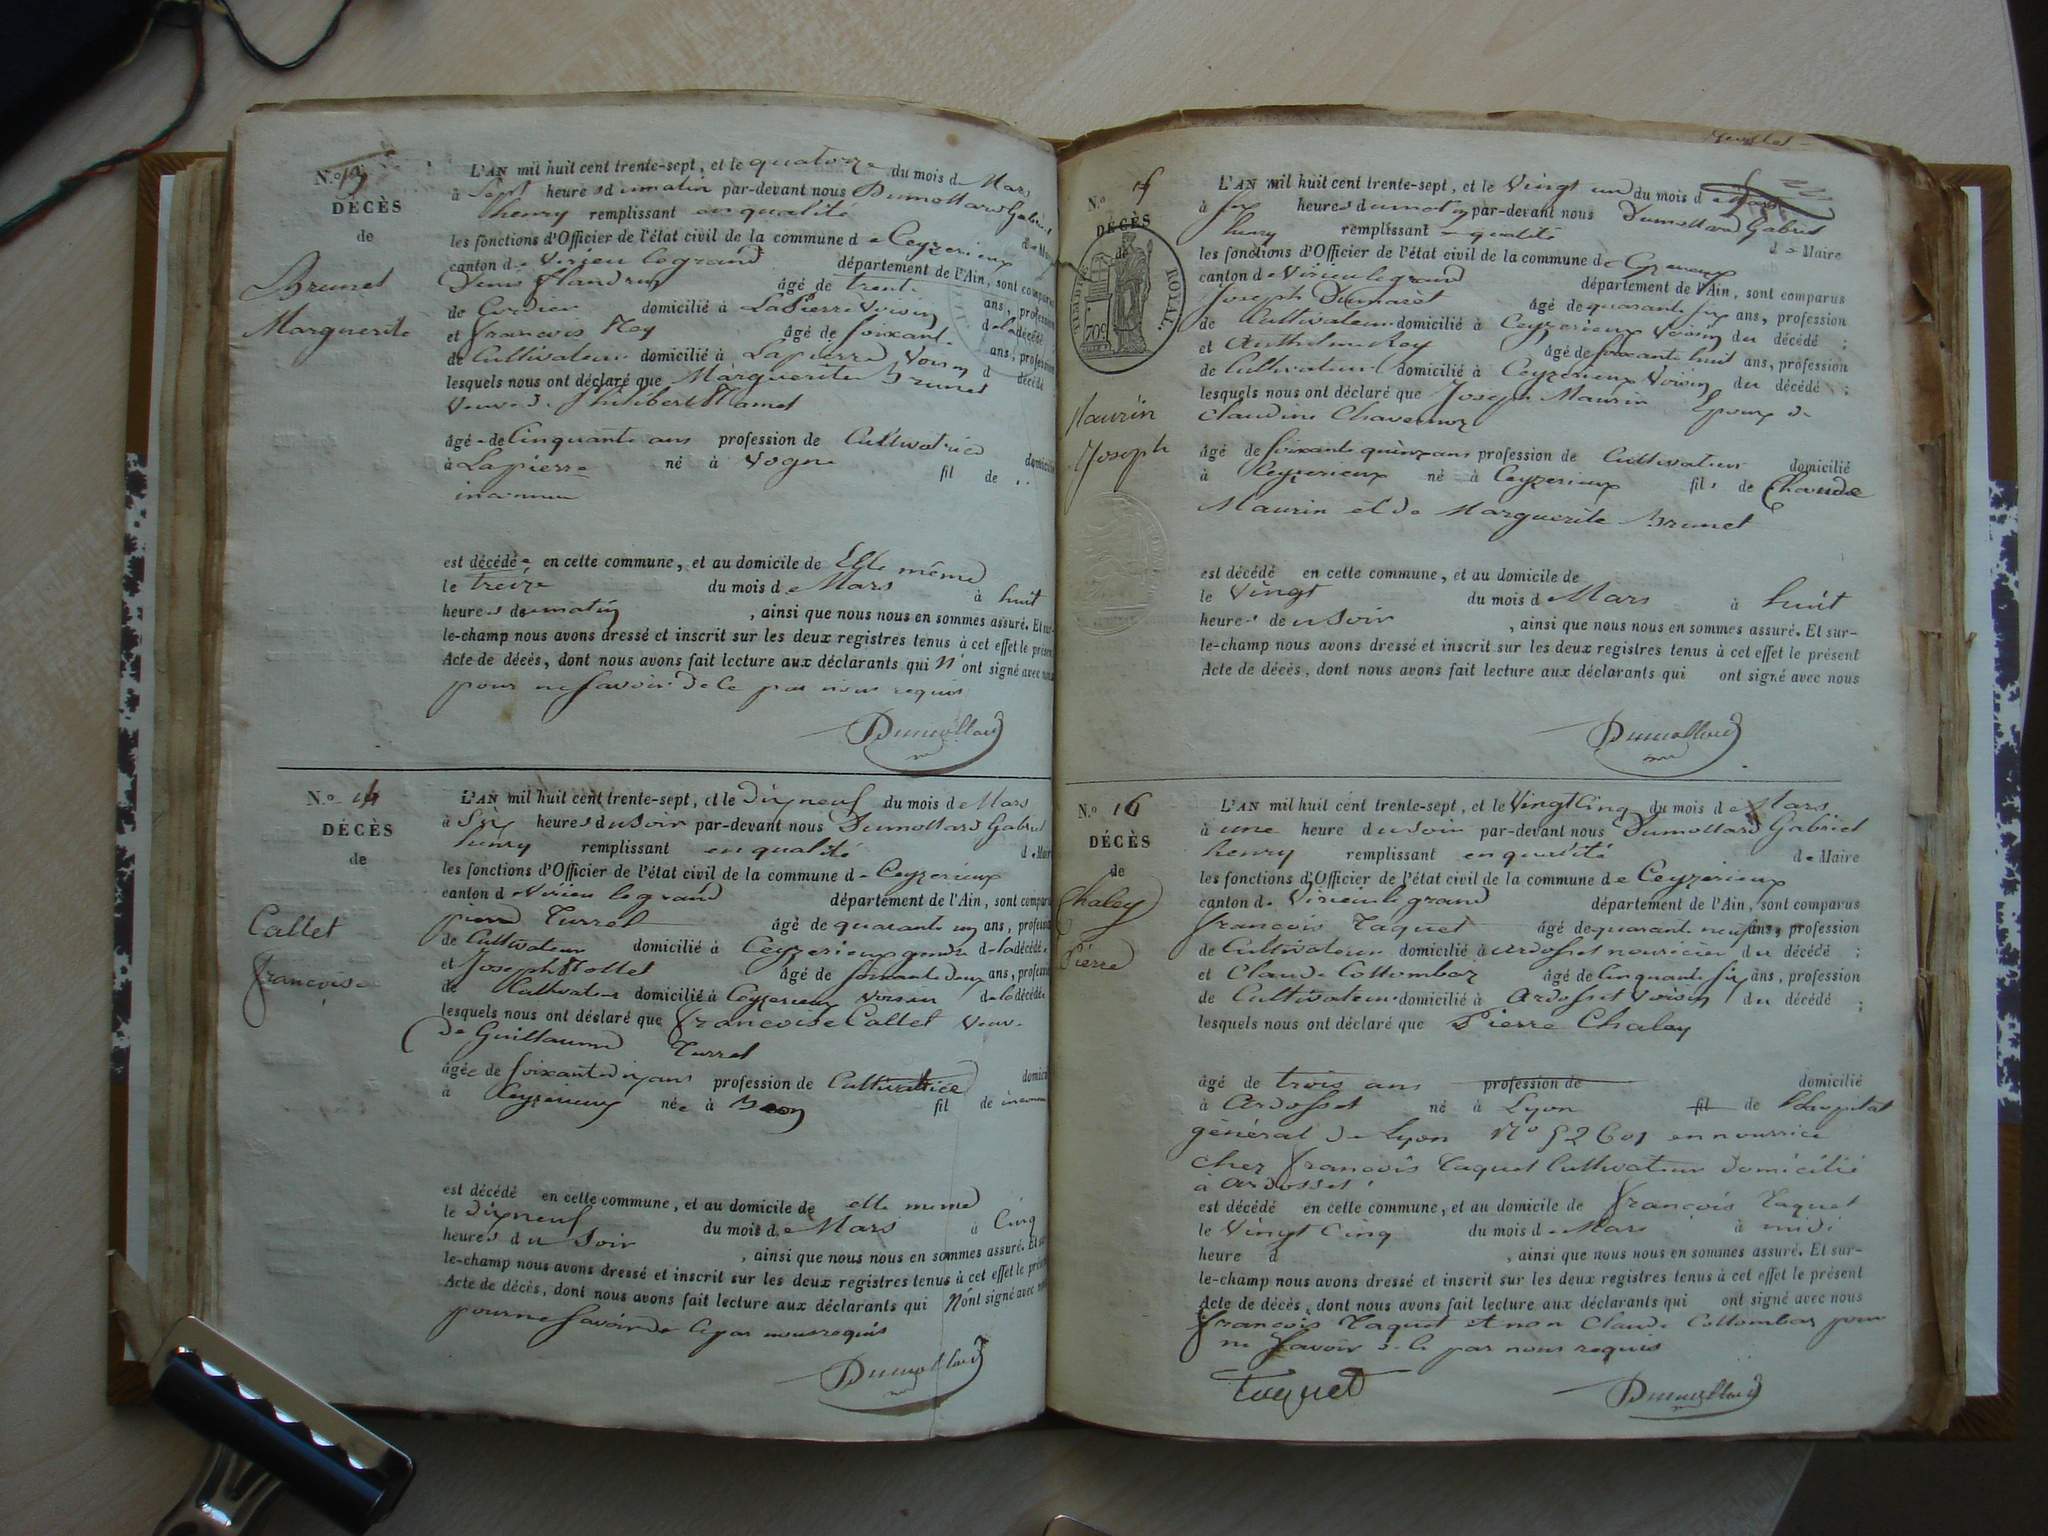 N.º 13
DÉCÈS
de
Brunet
Marguerite
L'AN mil huit cent trente-sept, et le quatorze du mois de Mars
à Sept heures du matin par-devant nous Dumollard Gabriel
henry remplissant en qualité de Maire
les fonctions d'Officier de l'état civil de la commune de Ceyzerieux
canton de Virieu le grand département de l'Ain, sont comparus
Denis flandrin âgé de trente ans, profession
de Cordier domicilié à LaPierre Voisin de la décédé
et françois Rey âgé de soixante ans, profession
de Cultivateur domicilié à Lapierre Voisin d décédé
lesquels nous ont déclaré que Marguerite Brunet
Veuve de philibert
âgé de Cinquante ans profession de Cultivatrice domicilié
à Lapierre né à Vogne fil de
inconnu
est décédée en cette commune, et au domicile de Elle même
le treize du mois de Mars à huit
heures du matin, ainsi que nous nous en sommes assuré. Et sur-
le-champ nous avons dressé et inscrit sur les deux registres tenus à cet effet le présent
Acte de décès, dont nous avons fait lecture aux déclarants qui n'ont signé avec nous
pour ne savoir de ce par nous requis
Dumollard
N.º 14
DÉCÈS
de
Callet
françoise
L'AN mil huit cent trente-sept, et le dix neuf du mois de Mars
à Six heures du Soir par-devant nous Dumollard Gabriel
henry remplissant en qualité de Maire
les fonctions d'Officier de l'état civil de la commune de Ceyzerieux
canton de Virieu le grand département de l'Ain, sont comparus
pierre Turrel âgé de quarante un ans, profession
de Cultivateur domicilié à Ceyzerieux gendre de la décédée
et Joseph Mollet âgé de soixante deux ans, profession
de Cultivateur domicilié à Ceyzerieux Voisin de la décédée
lesquels nous ont déclaré que françoise Callet Veuve
de Guillaume Turrel
âgée de soixante dix ans profession de Cultivatrice domicilié
à Ceyzerieux née à Beon fil de inconnu
est décédé en cette commune, et au domicile de elle meme
le dix neuf du mois de Mars à Cinq
heures du Soir, ainsi que nous nous en sommes assuré. Et sur-
le-champ nous avons dressé et inscrit sur les deux registres tenus à cet effet le présent
Acte de décès, dont nous avons fait lecture aux déclarants qui n'ont signé avec nous
pour ne savoir de ce par nous requis
Dumollard
N.º 15
DÉCÈS
de
TIMBRE ROYAL
70 c
Maurin
Joseph
L'AN mil huit cent trente-sept, et le Vingt un du mois de Mars
à six heures du matin par-devant nous Dumollard Gabriel
henry remplissant en qualité de Maire
les fonctions d'Officier de l'état civil de la commune de
canton de Virieu le grand département de l'Ain, sont comparus
Joseph Dumarêt âgé de quarante six ans, profession
de Cultivateur domicilié à Ceyzerieux Voisin du décédé ;
et Anthelme Rey âgé de soixante huit ans, profession
de Cultivateur domicilié à Ceyzerieux Voisin du décédé ;
lesquels nous ont déclaré que Joseph Maurin Epoux de
Claudine
âgé de soixante quinze ans profession de Cultivateur domicilié
à Ceyzerieux né à Ceyzerieux fils de Claude
Maurin et de Marguerite Brunet
est décédé en cette commune, et au domicile de
le Vingt du mois de Mars à huit
heures du Soir, ainsi que nous nous en sommes assuré. Et sur-
le-champ nous avons dressé et inscrit sur les deux registres tenus à cet effet le présent
Acte de décès, dont nous avons fait lecture aux déclarants qui ont signé avec nous
Dumollard
N.º 16
DÉCÈS
de
Chaley
Pierre
L'AN mil huit cent trente-sept, et le Vingt Cinq du mois de Mars
à une heure du Soir par-devant nous Dumollard Gabriel
henry remplissant en qualité de Maire
les fonctions d'Officier de l'état civil de la commune de Ceyzerieux
canton de Virieu le grand département de l'Ain, sont comparus
françois Taquet âgé de quarante neuf ans, profession
de Cultivateur domicilié à ardosset nouricier du décédé ;
et Claude Collombaz âgé de Cinquante six ans, profession
de Cultivateur domicilié à ardosset Voisin du décédé ;
lesquels nous ont déclaré que Pierre Chaley
âgé de trois ans profession de domicilié
à ardosset né à Lyon fil de l'hospital
général de Lyon N° 52601 en nourrice
chez françois Taquet Cultivateur domicilié
à ardosset
est décédé en cette commune, et au domicile de françois Taquet
le Vingt Cinq du mois de Mars à midi
heure d, ainsi que nous nous en sommes assuré. Et sur-
le-champ nous avons dressé et inscrit sur les deux registres tenus à cet effet le présent
Acte de décès, dont nous avons fait lecture aux déclarants qui ont signé avec nous
françois Taquet et non Claude Collombaz pour
ne savoir de ce par nous requis
Taquet
Dumollard